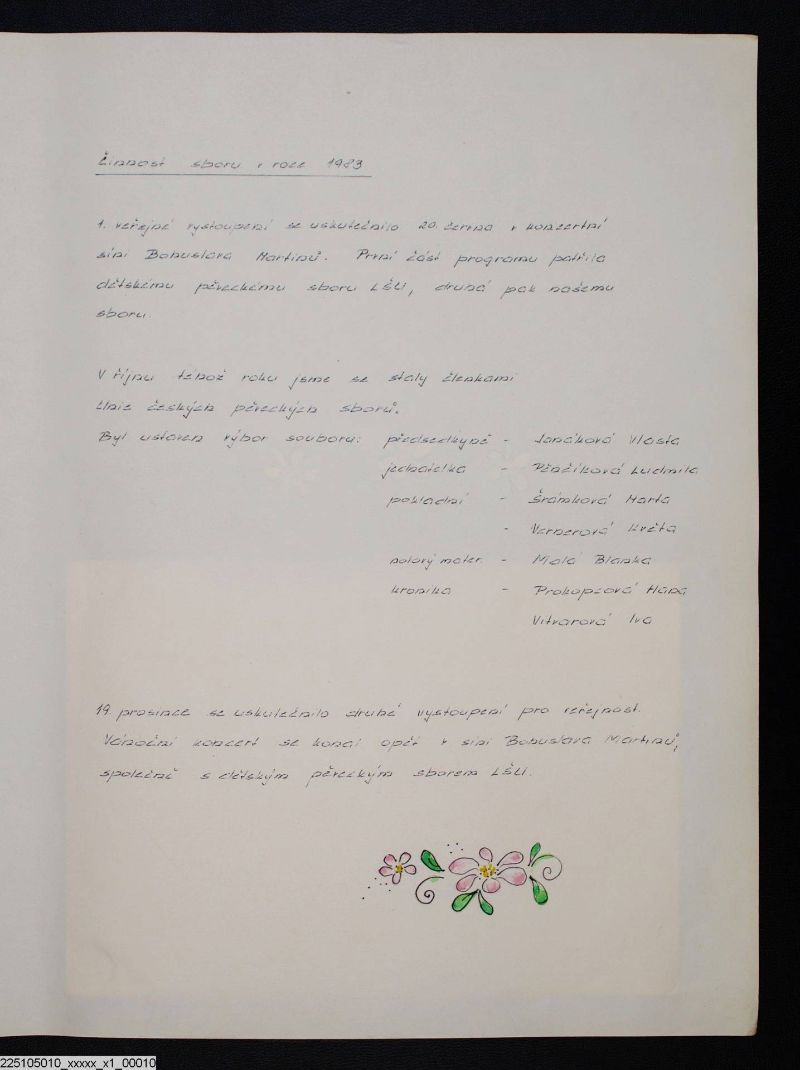 Činnost sboru v roce 1983
1. veřejné vystoupení se uskutečnilo 20. června v koncertní
síni Bohuslava Martinů. První část programu patřila
dětskému pěveckému sboru LŠU, druhá pak našemu
sboru.
V říjnu téhož roku jsme se staly členkami
Unie českých pěveckých sborů.
Byl ustaven výbor souboru: předsedkyně - Janáková Vlasta
jednatelka - Pěnčíková Ludmila
pokladní - Šrámková Marta
- Vernerová Květa
notový mater. - Malá Blanka
kronika - Prokopcová Hana
Vitvarová Iva
19. prosince se uskutečnilo druhé vystoupení pro veřejnost.
Vánoční koncert se konal opět v síni Bohuslava Martinů,
společně s dětským pěveckým sborem LŠU.
225105010_xxxxx_x1_00010